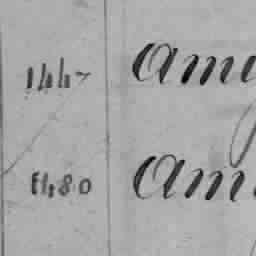 1447 Am
1480 Am